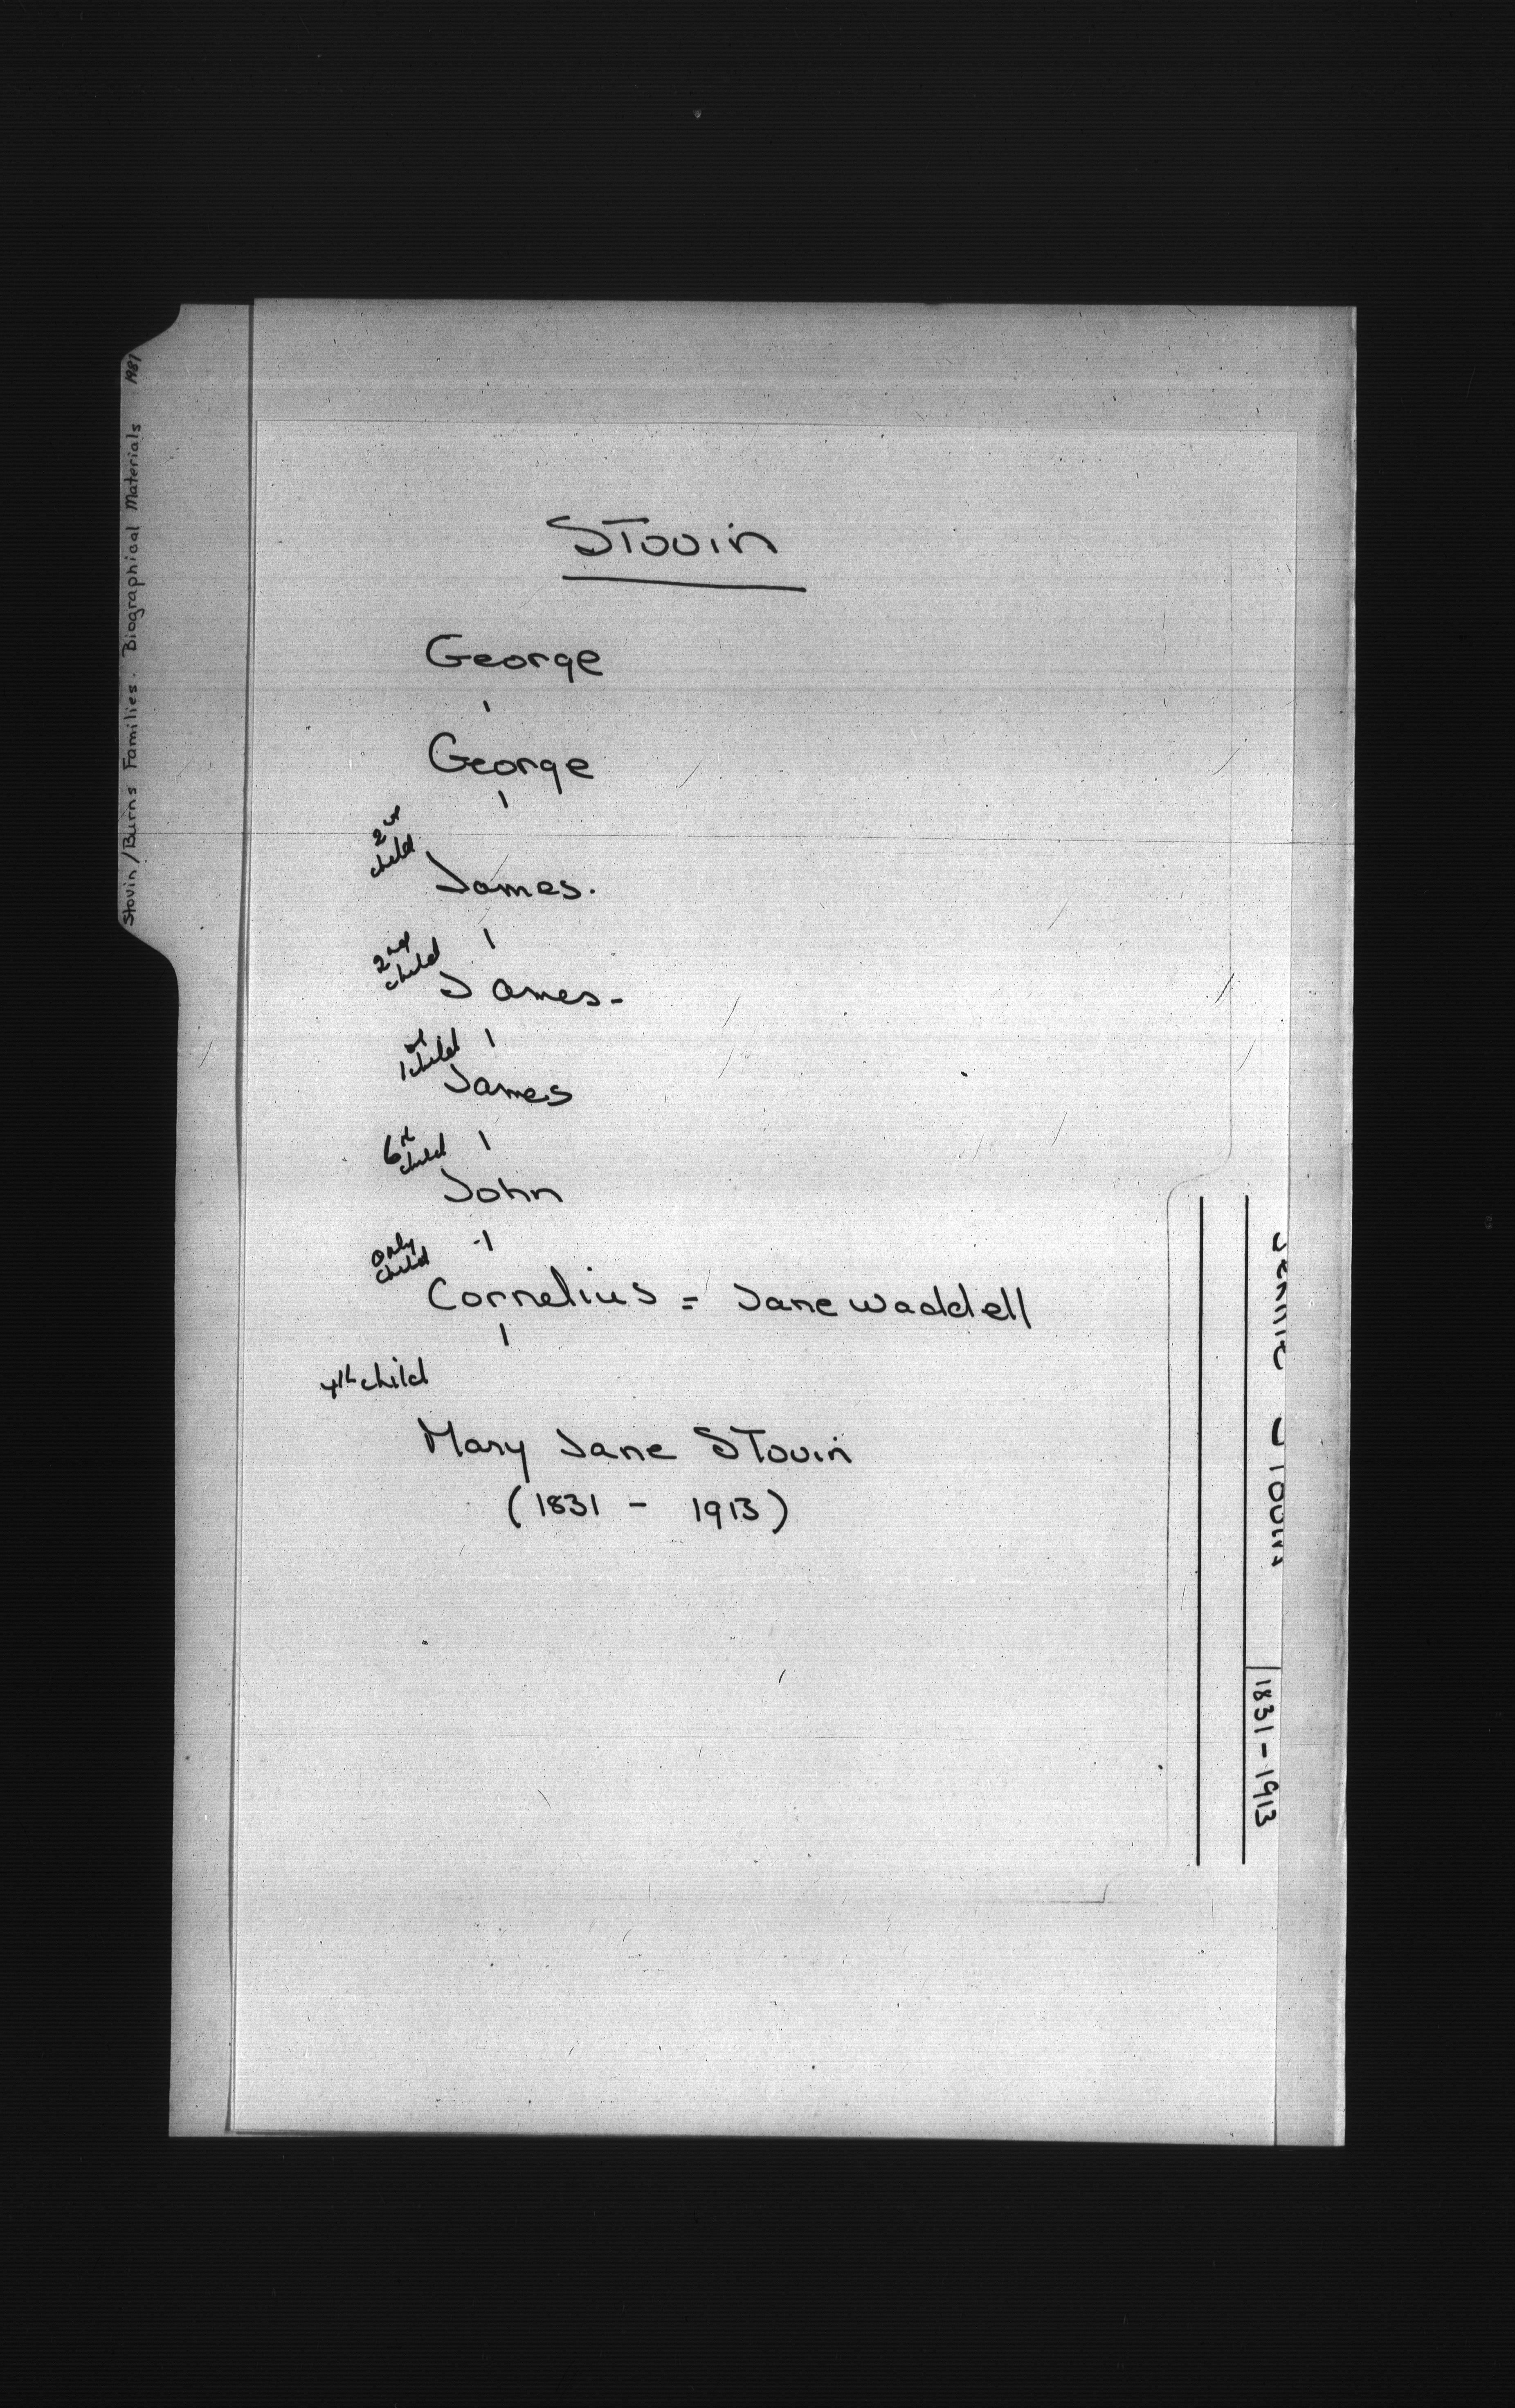 Stovin/Burns Families. Biographical Materials 1981
Stovin
George
George
2nd
child
James.
2nd
child
James-
1st
child
James
6th
child
John
only
child
Cornelius = Jane Waddell
4th child
Mary Jane Stovin
(1831 - 1913)
Jennie Stovin
1831-1913